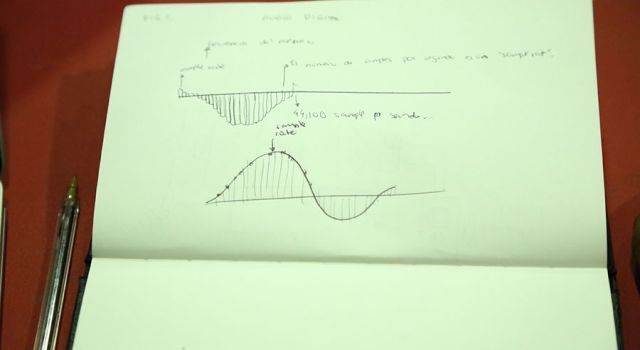 FIG. 1. AUDIO DIGITAL
frecuencia del muestreo
sample rate
El número de samples por segundo es un "sample rate".
44,100 sample per second...
sample
rate